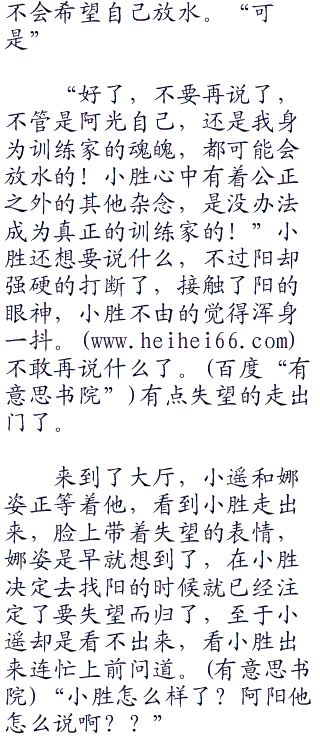 不会希望自己放水。“可
是”
“好了，不要再说了，
不管是阿光自己，还是我身
为训练家的魂魄，都可能会
放水的！小胜心中有着公正
之外的其他杂念，是没办法
成为真正的训练家的！”小
胜还想要说什么，不过阳却
强硬的打断了，接触了阳的
眼神，小胜不由的觉得浑身
一抖。(www.heihei66.com)
不敢再说什么了。(百度“有
意思书院”)有点失望的走出
门了。
来到了大厅，小遥和娜
姿正等着他，看到小胜走出
来，脸上带着失望的表情，
娜姿是早就想到了，在小胜
决定去找阳的时候就已经注
定了要失望而归了，至于小
遥却是看不出来，看小胜出
来连忙上前问道。(有意思书
院)“小胜怎么样了？阿阳他
怎么说啊？？”